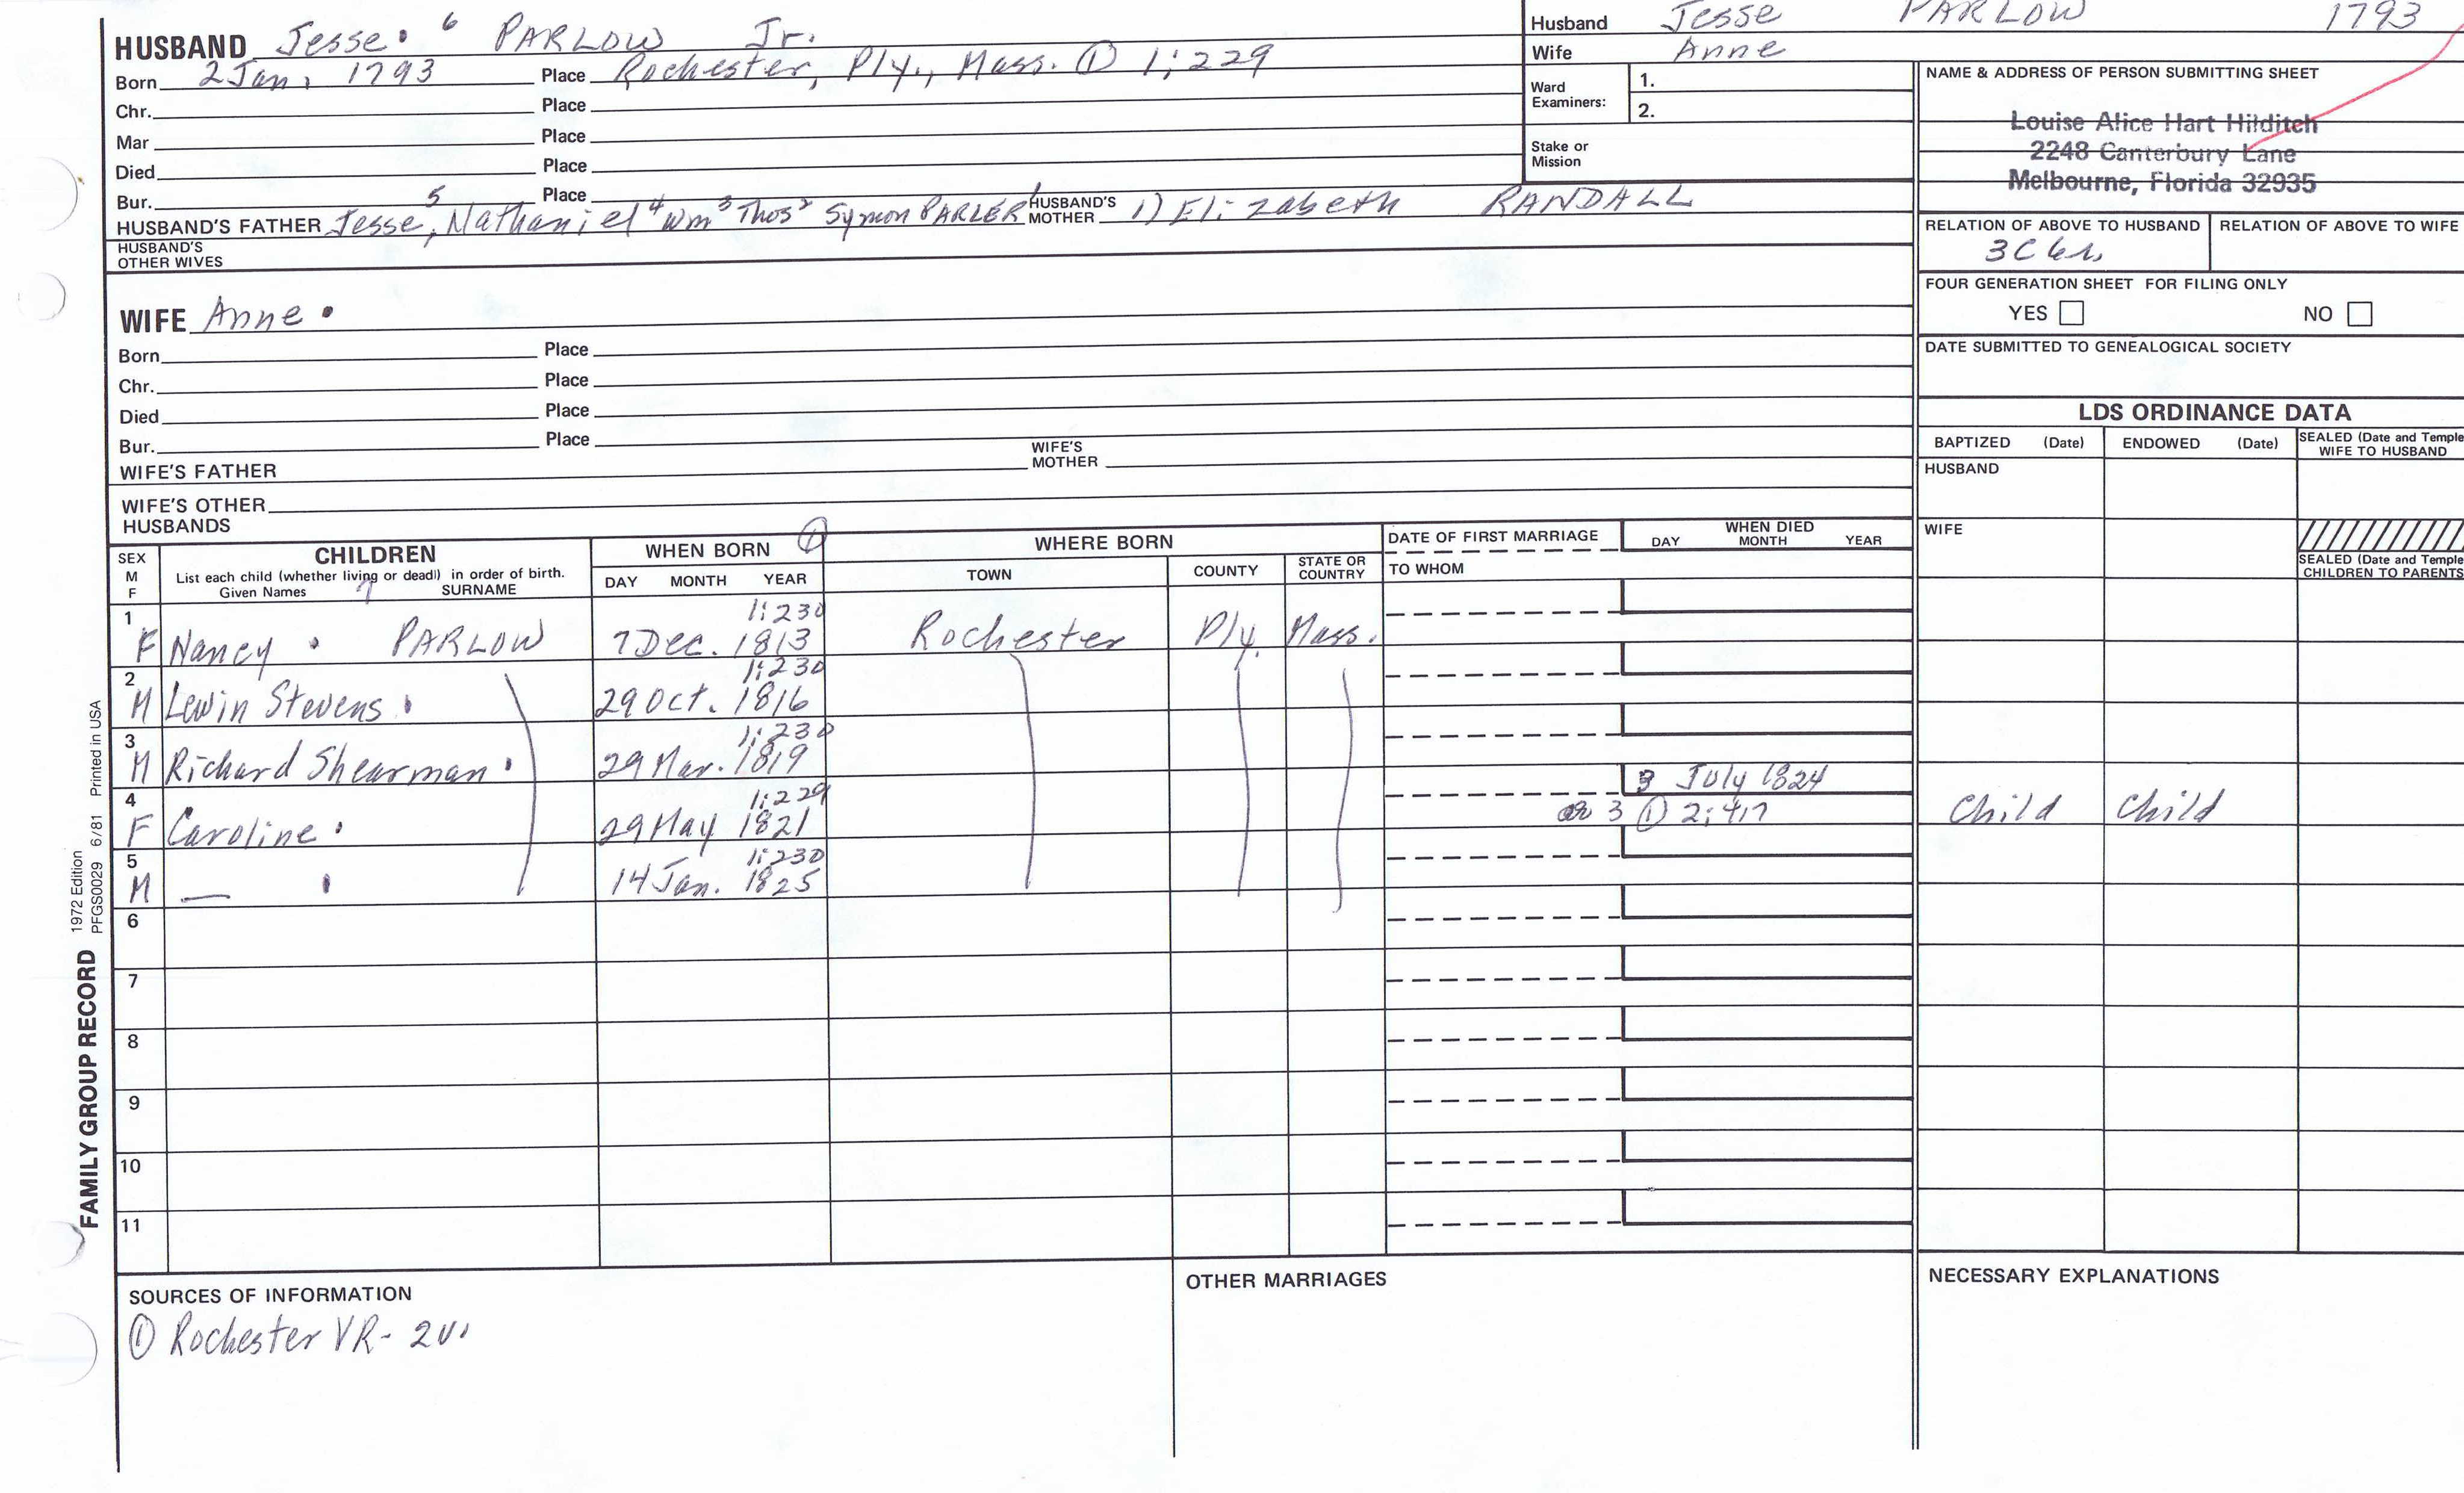 HUSBAND Jesse 6 PARLOW Jr.
Born 2 Jan. 1793 Place Rochester, Ply., Mass. ① 1:229
Chr. Place
Mar Place
Died Place
Bur. Place
HUSBAND'S FATHER Jesse 5, Nathaniel 4 Wm 3 Thos 2 Symon PARLER 1 HUSBAND'S MOTHER 1) Elizabeth RANDALL
HUSBAND'S OTHER WIVES
WIFE Anne
Born Place
Chr. Place
Died Place
Bur. Place
WIFE'S FATHER WIFE'S MOTHER
WIFE'S OTHER HUSBANDS
Husband Jesse PARLOW 1793
Wife Anne
Ward Examiners: 1.
2.
Stake or Mission
NAME & ADDRESS OF PERSON SUBMITTING SHEET
Louise Alice Hart Hilditch
2248 Canterbury Lane
Melbourne, Florida 32935
RELATION OF ABOVE TO HUSBAND RELATION OF ABOVE TO WIFE
3C
FOUR GENERATION SHEET FOR FILING ONLY
YES NO
DATE SUBMITTED TO GENEALOGICAL SOCIETY
LDS ORDINANCE DATA
BAPTIZED (Date) ENDOWED (Date) SEALED (Date and Temple WIFE TO HUSBAND
HUSBAND
WIFE
SEALED (Date and Temple CHILDREN TO PARENTS
SEX M F CHILDREN WHEN BORN ① WHERE BORN DATE OF FIRST MARRIAGE WHEN DIED
List each child (whether living or dead) in order of birth.
Given Names 7 SURNAME DAY MONTH YEAR TOWN COUNTY STATE OR COUNTRY TO WHOM DAY MONTH YEAR
1 1:230
F Nancy PARLOW 7 Dec. 1813 Rochester Ply. Mass.
2 1:230
M Lewin Stevens 29 Oct. 1816
3 1:230
M Richard Shearman 29 Mar. 1819
4 1:229 3 July 1824
F Caroline 29 May 1821 ae 3 ① 2:417 Child Child
5 1:230
M — 14 Jan. 1825
6
7
8
9
10
11
FAMILY GROUP RECORD 1972 Edition
PFGS0029 6/81 Printed in USA
SOURCES OF INFORMATION
① Rochester VR- 2v.
OTHER MARRIAGES
NECESSARY EXPLANATIONS